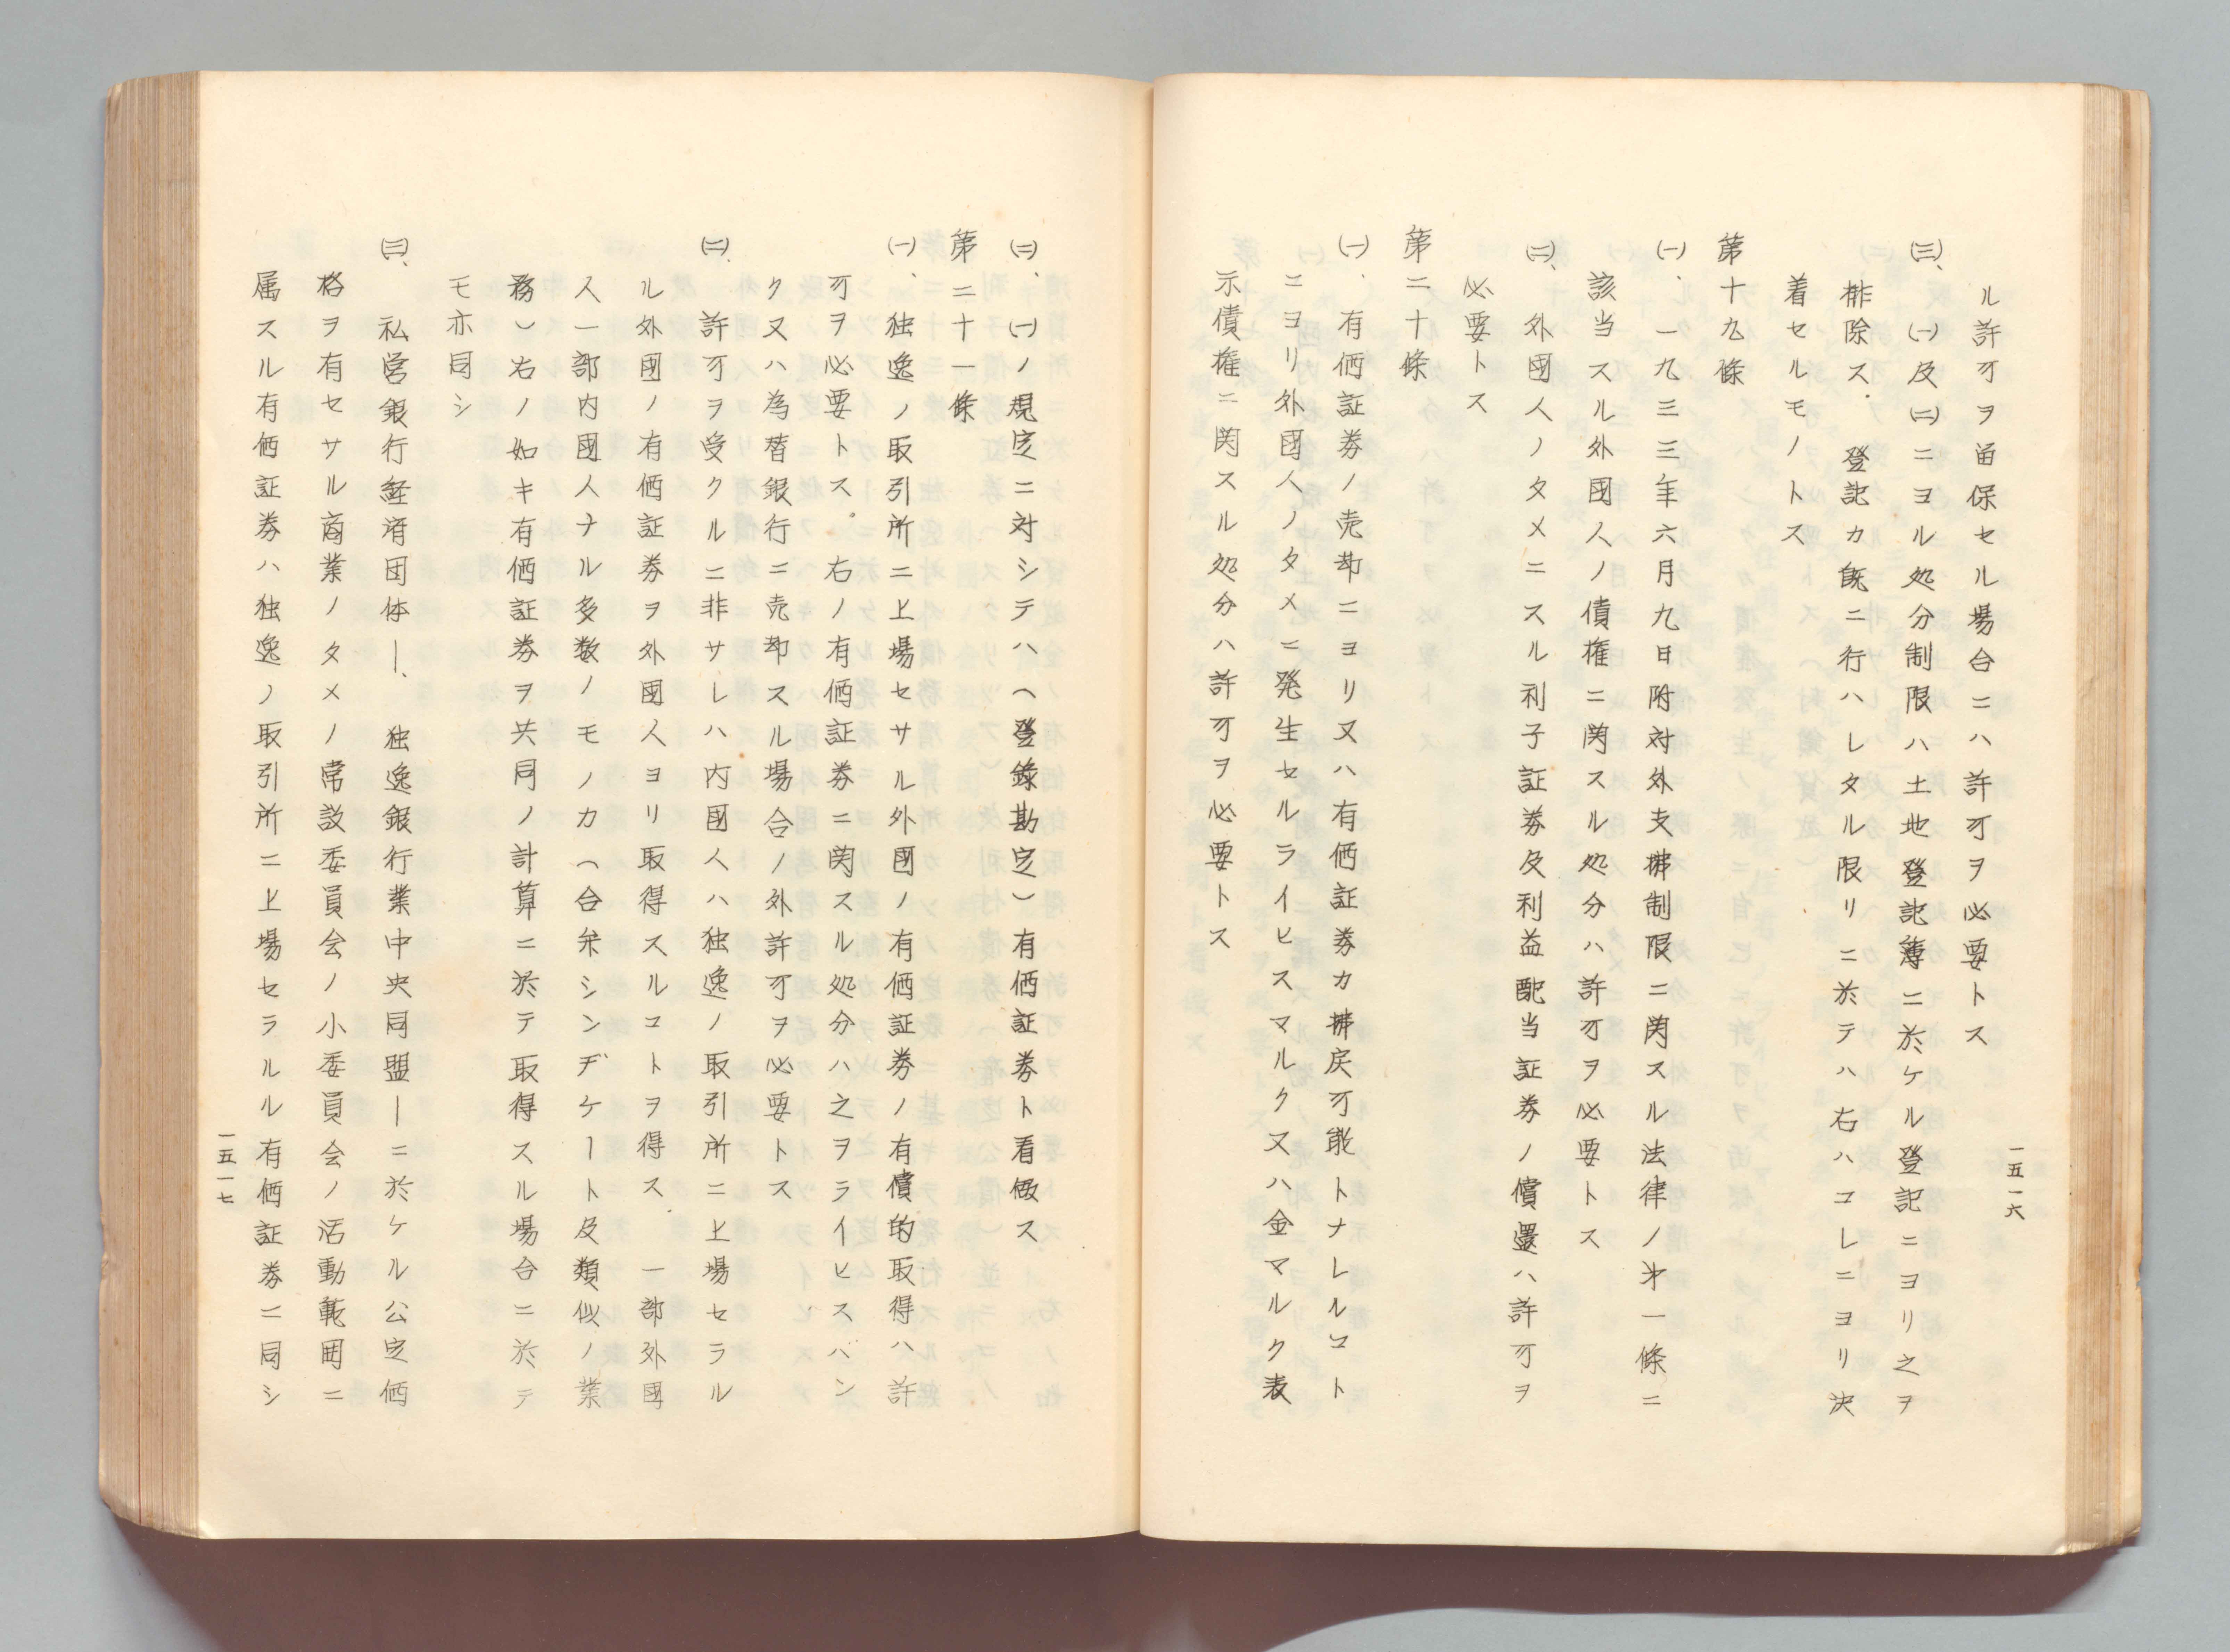 一五一六
ル許可ヲ留保セル場合ニハ許可ヲ必要トス
㈢、㈠及㈡ニヨル処分制限ハ土地登記簿ニ於ケル登記ニヨリ之ヲ
排除ス．登記カ既ニ行ハレタル限リニ於テハ右ハコレニヨリ決
着セルモノトス
第十九條
㈠．一九三三年六月九日附対外支拂制限ニ関スル法律ノ第一條ニ
該当スル外國人ノ債権ニ関スル処分ハ許可ヲ必要トス
㈡、外國人ノタメニスル利子証券及利益配当証券ノ償還ハ許可ヲ
必要トス
第二十條
㈠．有価証券ノ売却ニヨリ又ハ有価証券カ拂戻可能トナレルコト
ニヨリ外國人ノタメニ発生セルライヒスマルク又ハ金マルク表
示債権ニ関スル処分ハ許可ヲ必要トス
㈡、㈠ノ規定ニ対シテハ（登録勘定）有価証券ト看做ス
第二十一條
㈠、独逸ノ取引所ニ上場セサル外国ノ有価証券ノ有償的取得ハ許
可ヲ必要トス。右ノ有価証券ニ関スル処分ハ之ヲライヒスバン
ク又ハ為替銀行ニ売却スル場合ノ外許可ヲ必要トス
㈡．許可ヲ受クルニ非サレハ内國人ハ独逸ノ取引所ニ上場セラル
ル外國ノ有価証券ヲ外國人ヨリ取得スルコトヲ得ス．一部外國
人一部内國人ナル多数ノモノカ（合弁シンヂケート及類似ノ業
務）右ノ如キ有価証券ヲ共同ノ計算ニ於テ取得スル場合ニ於テ
モ亦同シ
㈢、私営銀行経済団体ー、独逸銀行業中央同盟ーニ於ケル公定価
格ヲ有セサル商業ノタメノ常設委員会ノ小委員会ノ活動範囲ニ
属スル有価証券ハ独逸ノ取引所ニ上場セラルル有価証券ニ同シ
一五一七